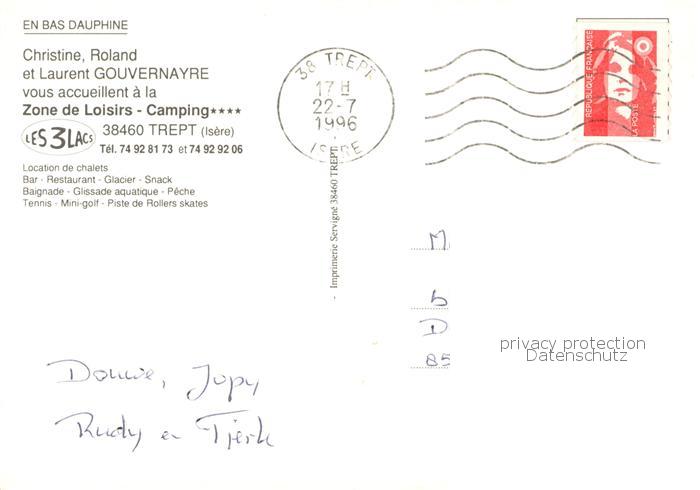 EN BAS DAUPHINE
Christine, Roland
et Laurent GOUVERNAYRE
vous accueillent à la
Zone de Loisirs - Camping****
LES 3 LACS
38460 TREPT (Isère)
Tél. 74 92 81 73 et 74 92 92 06
Location de chalets
Bar - Restaurant - Glacier - Snack
Baignade - Glissade aquatique - Pêche
Tennis - Mini-golf - Piste de Rollers skates
38 TREPT
17 H
22-7
1996
ISERE
REPUBLIQUE FRANÇAISE
LA POSTE
Imprimerie Servigné 38460 TREPT
M
b
D
85
privacy protection
Datenschutz
Rudy en Tjerk